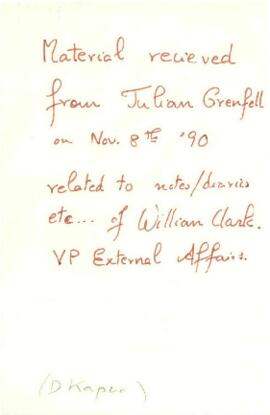 Material recieved
from Julian Grenfell
on Nov. 8th '90
related to notes/diaries
etc... of William Clark.
VP External Affairs.
(D Kapur)